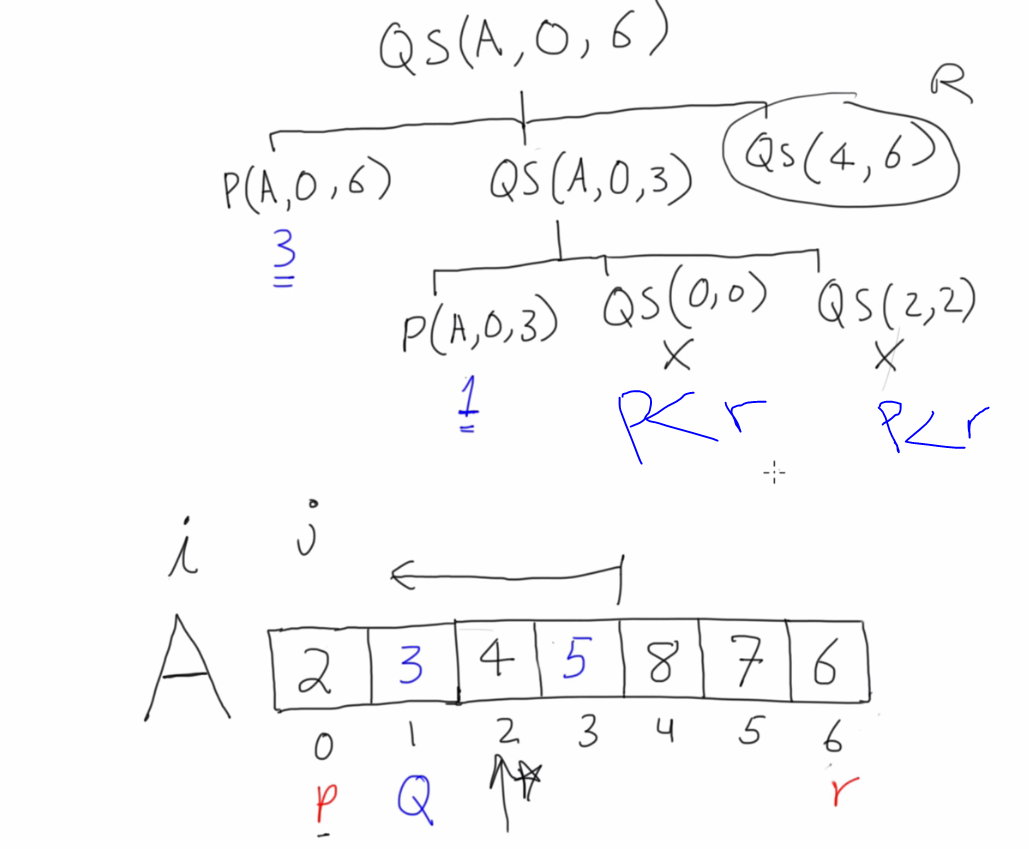 QS(A,0,6)
R
P(A,0,6) QS(A,0,3) QS(4,6)
3
P(A,0,3) QS(0,0) QS(2,2)
X X
1
P<r P<r
i j
A 2 3 4 5 8 7 6
0 1 2 3 4 5 6
P Q r